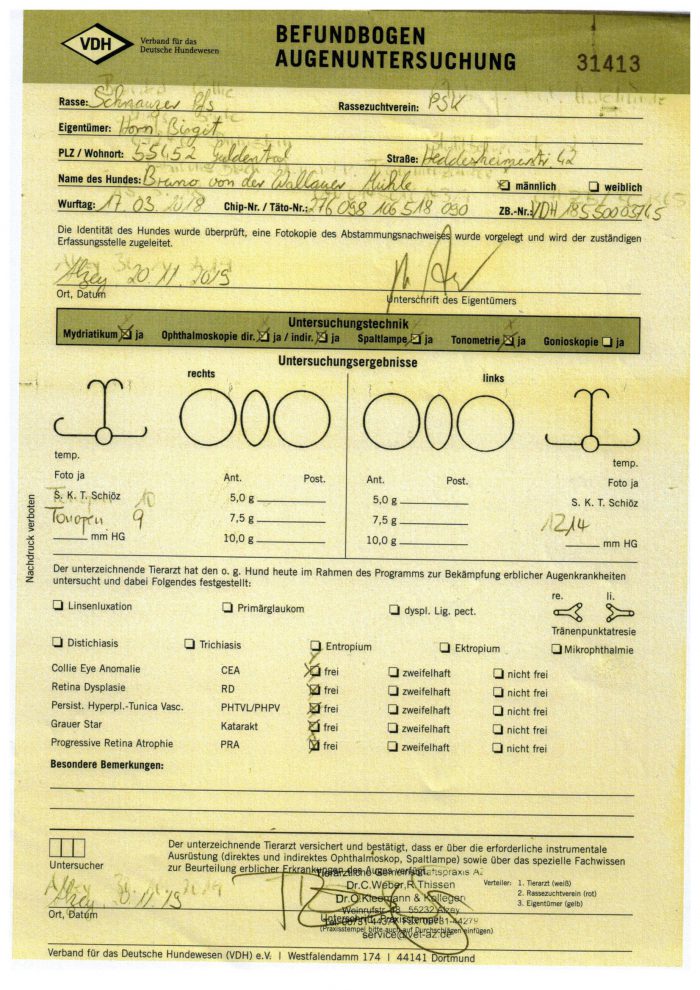 VDH Verband für das Deutsche Hundewesen
BEFUNDBOGEN
AUGENUNTERSUCHUNG
31413
Rasse: Schnauzer P/S Rassezuchtverein: PSK
Eigentümer: Horn, Birgit
PLZ / Wohnort: 55452 Guldental Straße: Heddesheimerstr. 42
Name des Hundes: Bruno von der Wallauer Mühle männlich weiblich
Wurftag: 17 03. 2018 Chip-Nr. / Täto-Nr.: 276 098 106 518 090 ZB.-Nr.: VDH
Die Identität des Hundes wurde überprüft, eine Fotokopie des Abstammungsnachweises wurde vorgelegt und wird der zuständigen
Erfassungsstelle zugeleitet.
Alzey 20 11. 2019
Ort, Datum Unterschrift des Eigentümers
Untersuchungstechnik
Mydriatikum ja Ophthalmoskopie dir. ja / indir. ja Spaltlampe ja Tonometrie ja Gonioskopie ja
Untersuchungsergebnisse
rechts links
temp. temp.
Foto ja Ant. Post. Ant. Post. Foto ja
S. K. T. Schiöz 5,0 g 5,0 g S. K. T. Schiöz
Tonopen 9 7,5 g 7,5 g 12 14
mm HG 10,0 g 10,0 g mm HG
Nachdruck verboten
Der unterzeichnende Tierarzt hat den o. g. Hund heute im Rahmen des Programms zur Bekämpfung erblicher Augenkrankheiten
untersucht und dabei Folgendes festgestellt:
Linsenluxation Primärglaukom dyspl. Lig. pect. re. li.
Tränenpunktatresie
Distichiasis Trichiasis Entropium Ektropium Mikrophthalmie
Collie Eye Anomalie CEA frei zweifelhaft nicht frei
Retina Dysplasie RD frei zweifelhaft nicht frei
Persist. Hyperpl.-Tunica Vasc. PHTVL/PHPV frei zweifelhaft nicht frei
Grauer Star Katarakt frei zweifelhaft nicht frei
Progressive Retina Atrophie PRA frei zweifelhaft nicht frei
Besondere Bemerkungen:
Der unterzeichnende Tierarzt versichert und bestätigt, dass er über die erforderliche instrumentale
Ausrüstung (direktes und indirektes Ophthalmoskop, Spaltlampe) sowie über das spezielle Fachwissen
zur Beurteilung erblicher Erkrankungen des Auges verfügt.
Untersucher
Tierärztliche Gemeinschaftspraxis Az
Dr.C.Weber,R.Thissen
Dr.O.Kleemann & Kollegen
Weinrufstr. 55232 Alzey
(Praxisstempel bitte auch auf Durchschlägen einfügen)
service@vet-az.de
Verteiler: 1. Tierarzt (weiß)
2. Rassezuchtverein (rot)
3. Eigentümer (gelb)
Alzey, 20.11.19
Ort, Datum
Verband für das Deutsche Hundewesen (VDH) e.V. | Westfalendamm 174 | 44141 Dortmund